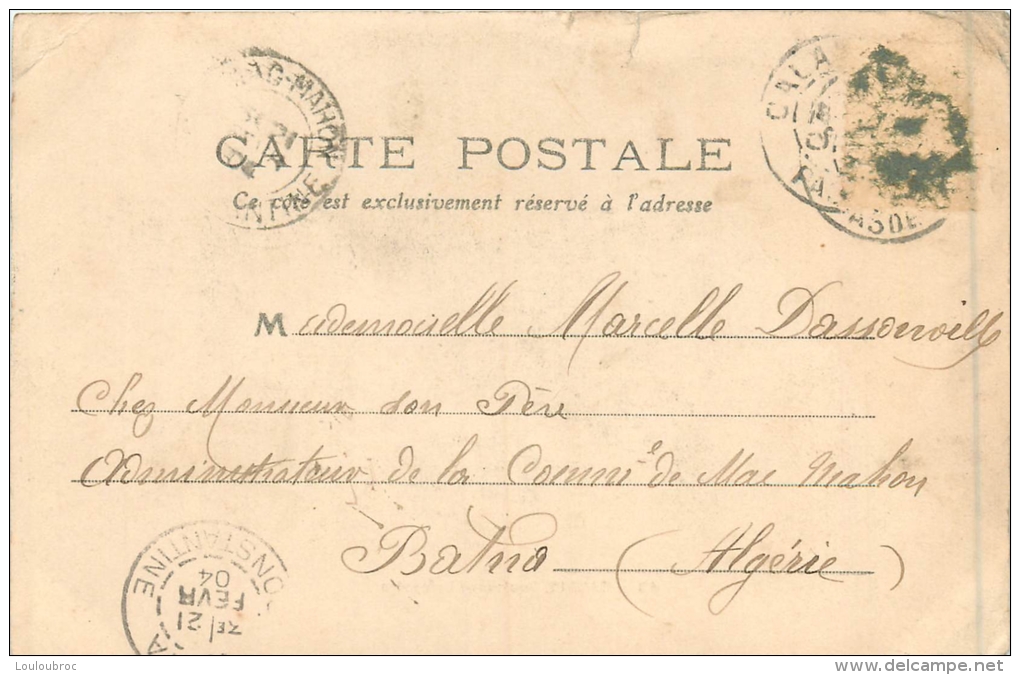 MAC-MAHON
CALA
PAS DE
CARTE POSTALE
Ce côté est exclusivement réservé à l'adresse
Mademoiselle Marcelle Dassonville
Chez Monsieur son Père
Administrateur de la Comm^e de Mac Mahon
Batna (Algérie)
CONSTANTINE
3E / 21
FEVR
04
Louloubroc
www.delcampe.net